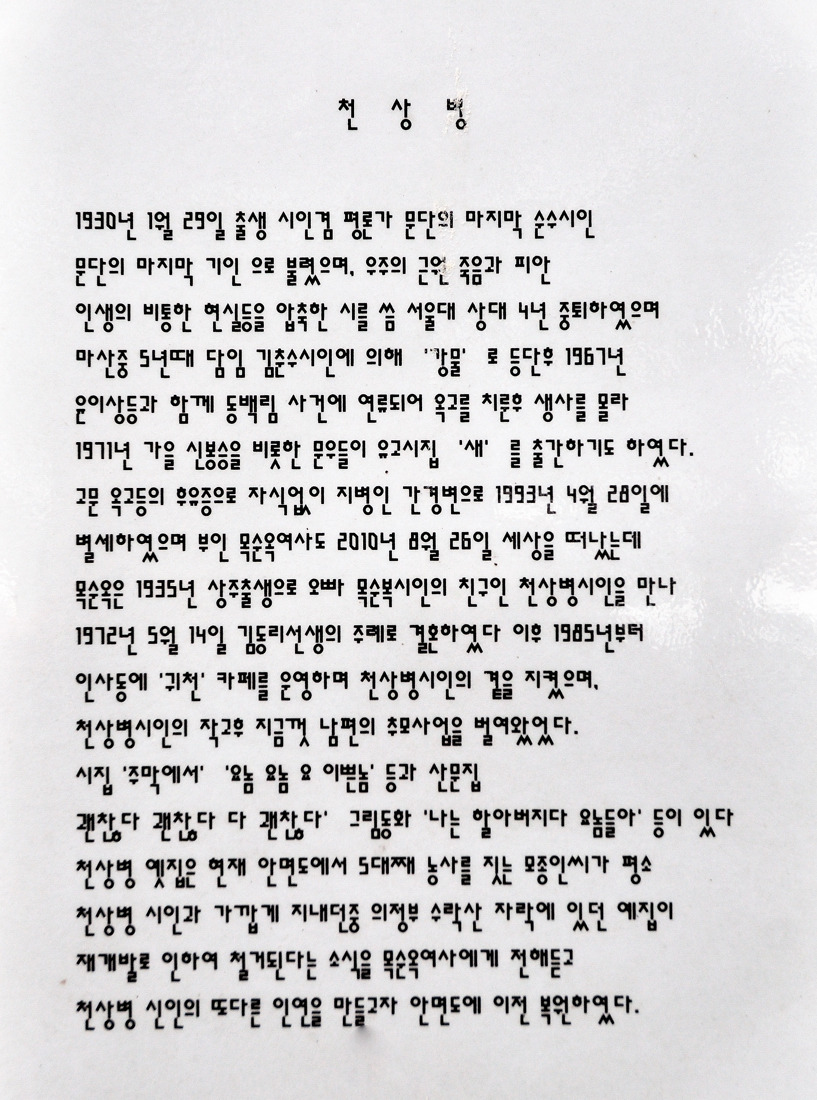 천 상 병
1930년 1월 29일 출생 시인겸 평론가 문단의 마지막 순수시인
문단의 마지막 기인 으로 불렸으며, 우주의 근원 죽음과 피안
인생의 비통한 현실등을 압축한 시를 씀 서울대 상대 4년 중퇴하였으며
마산중 5년때 담임 김춘수시인에 의해 '강물' 로 등단후 1967년
윤이상등과 함께 동백림 사건에 연류되어 옥고를 치룬후 생사를 몰라
1971년 가을 신봉승을 비롯한 문우들이 유고시집 '새' 를 출간하기도 하였다.
고문 옥고등의 후유증으로 자식없이 지병인 간경변으로 1993년 4월 28일에
별세하였으며 부인 목순옥여사도 2010년 8월 26일 세상을 떠났는데
목순옥은 1935년 상주출생으로 오빠 목순복시인의 친구인 천상병시인을 만나
1972년 5월 14일 김동리선생의 주례로 결혼하였다 이후 1985년부터
인사동에 '귀천' 카페를 운영하며 천상병시인의 곁을 지켰으며,
천상병시인의 작고후 지금껏 남편의 추모사업을 벌여왔었다.
시집 '주막에서' '요놈 요놈 요 이쁜놈' 등과 산문집
괜찮다 괜찮다 다 괜찮다' 그림동화 '나는 할아버지다 요놈들아' 등이 있다
천상병 옛집은 현재 안면도에서 5대째 농사를 짓는 모종인씨가 평소
천상병 시인과 가깝게 지내던중 의정부 수락산 자락에 있던 예집이
재개발로 인하여 철거된다는 소식을 목순옥여사에게 전해듣고
천상병 신인의 또다른 인연을 만들고자 안면도에 이전 복원하였다.